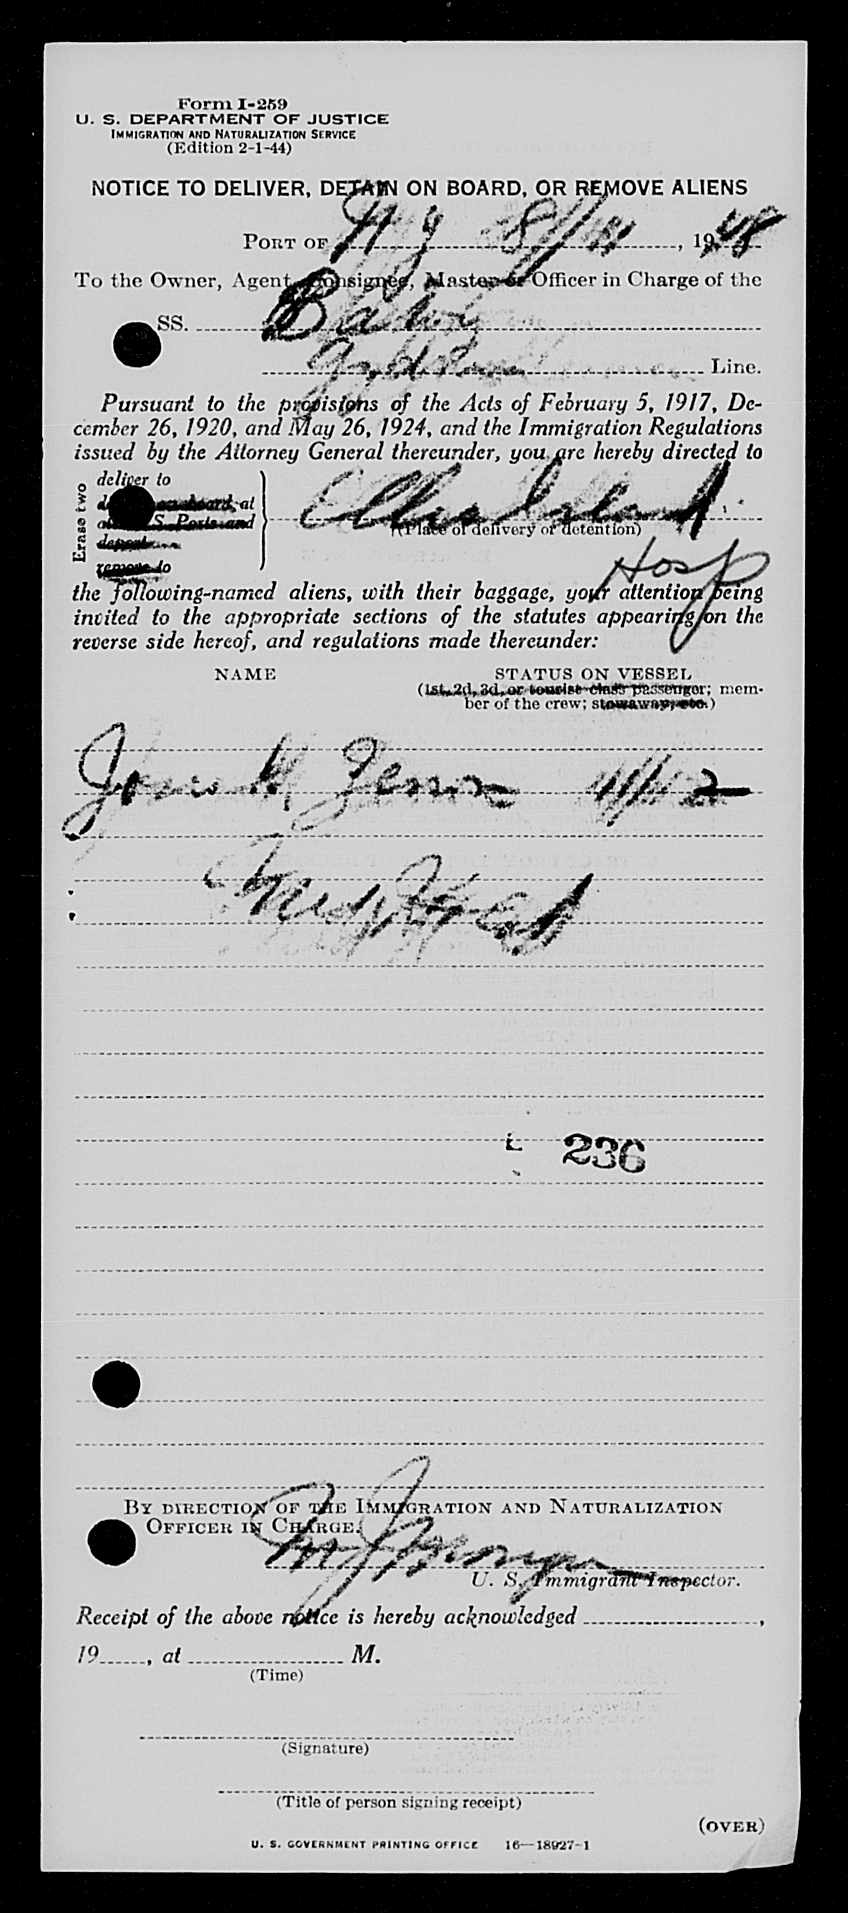 Form I-259
U. S. DEPARTMENT OF JUSTICE
IMMIGRATION AND NATURALIZATION SERVICE
(Edition 2-1-44)
NOTICE TO DELIVER, DETAIN ON BOARD, OR REMOVE ALIENS
PORT OF N Y 8/ 1948
To the Owner, Agent, Consignee, Master or Officer in Charge of the
SS.
Line.
Pursuant to the provisions of the Acts of February 5, 1917, De-
cember 26, 1920, and May 26, 1924, and the Immigration Regulations
issued by the Attorney General thereunder, you are hereby directed to
Erase two
deliver to
on board, at
S. Ports and
deport
remove to
Ellis Island
(Place of delivery or detention)
Hosp
the following-named aliens, with their baggage, your attention being
invited to the appropriate sections of the statutes appearing on the
reverse side hereof, and regulations made thereunder:
NAME STATUS ON VESSEL
(1st, 2d, 3d, or tourist class passenger; mem-
ber of the crew; stowaway, etc.)
236
BY DIRECTION OF THE IMMIGRATION AND NATURALIZATION
OFFICER IN CHARGE.
U. S. Immigrant Inspector.
Receipt of the above notice is hereby acknowledged ,
19 , at M.
(Time)
(Signature)
(Title of person signing receipt)
(OVER)
U. S. GOVERNMENT PRINTING OFFICE 16—18927-1